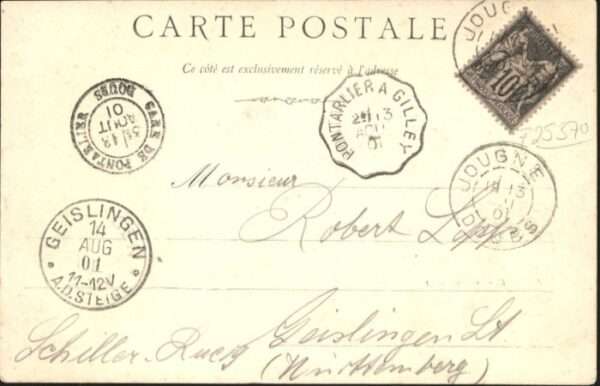 CARTE POSTALE
Ce côté est exclusivement réservé à l'adresse
JOUGNE
10
T25370
GARE DE PONTARLIER DOUBS
13
AOUT
01
PONTARLIER A GILLEY
13
AOU
01
JOUGNE
13
01
DOUBS
Monsieur
Robert
GEISLINGEN
14
AUG
01
11-12V
A.D. STEIGE
Geislingen St.
Schiller-
(Württemberg)